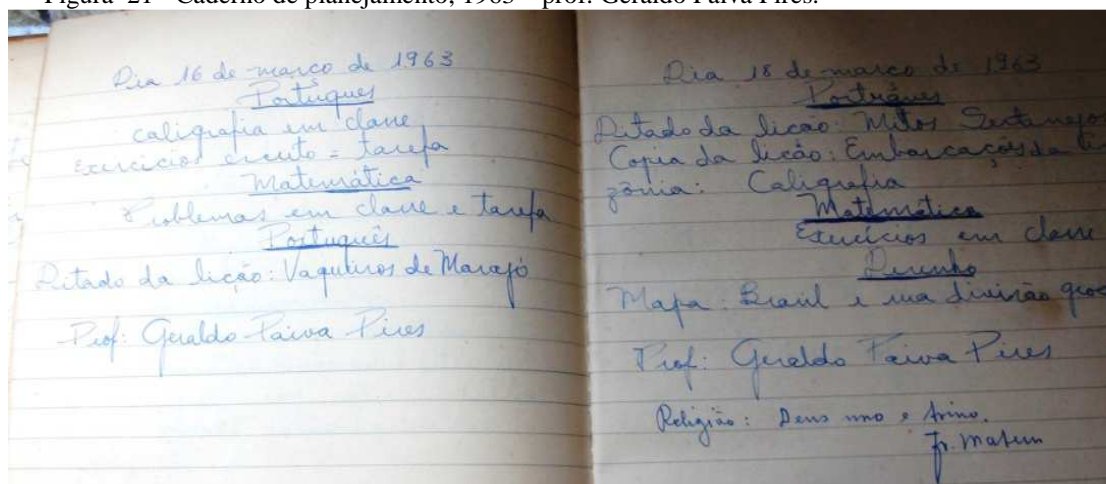 Figura 21 – Caderno de planejamento, 1963 – prof. Geraldo Paiva Pires.
Dia 16 de março de 1963
Portugues
caligrafia em classe
Exercicios escrito = tarefa
Matemática
Problemas em classe e tarefa
Português
Ditado da lição: Vaqueiros de Marajó
Prof: Geraldo Paiva Pires
Dia 18 de março de 1963
Português
Ditado da licão: Mitos Sertanejos
Copia da licão: Embarcações da
zônia: Caligrafia
Matemática
Exercícios em classe
Desenho
Mapa: Brasil e sua divisão
Prof: Geraldo Paiva Pires
Religião: Deus uno e trino.
Fr.